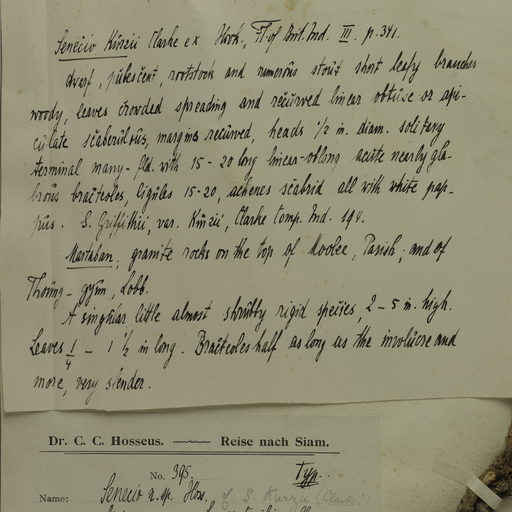 Senecio Kurzii Clarke ex Hook., Fl. of Brit. Ind. III. p. 341.
dwarf, pubescent, rootstock and numerous stout short leafy branches
woody, leaves crowded spreading and recurved linear obtuse or api-
culate scaberulous, margins recurved, heads 1/2 in. diam. solitary
terminal many-fld. with 15-20 long linear-oblong acute nearly gla-
brous bracteoles, ligules 15-20, achenes scabrid all with white pap-
pus. S. Griffithii, var. Kurzii, Clarke Comp. Ind. 194.
Martaban, granite rocks on the top of Moolee, Parish; and of
Thoung-gyun, Lobb.
A singular little almost shrubby rigid species, 2-5 in. high.
Leaves 1/4 - 1 1/2 in long. Bracteoles half as long as the involucre and
more, very slender.
Dr. C. C. Hosseus. Reise nach Siam.
No. 395. Typ.
Name: Senecio n. sp. Hoss. cf S. Kurzii (Clarke)